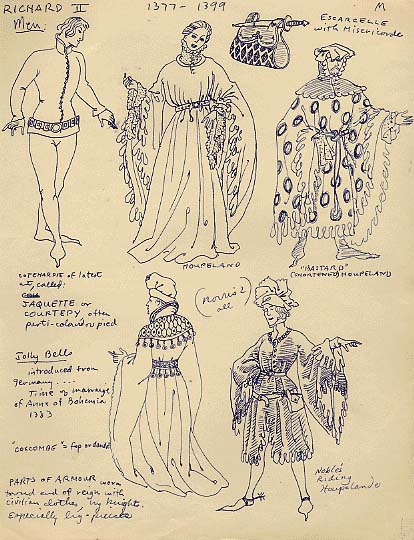 RICHARD II
1377 - 1399
M
Men:
ESCARCELLE
with Misericorde
HOUPELAND
"BASTARD"
(SHORTENED) HOUPELAND
COTEHARDIE of latest
cut, called:
JAQUETTE or
COURTEPY often
parti-coloured or pied
(Norris 2
all)
Jolly Bells
introduced from
Germany ....
Time of marriage
of Anne of Bohemia
1383
"COXCOMBE" = Fop or dandy
PARTS OF ARMOUR worn
toward end of reign with
civilian clothes by knights.
Especially leg-pieces
Nobles
Riding
Houpelande